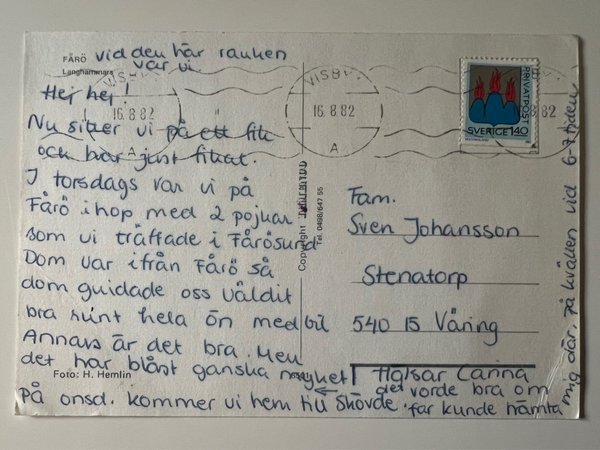 FÅRÖ vid den här rauken
Langhammars var vi.
VISBY
16.8.82
A
VISBY
16.8.82
A
8.82
PRIVATPOST
SVERIGE 140
Hej hej!
Nu sitter vi på ett fik
och har just fikat.
I torsdags var vi på
Fårö ihop med 2 pojkar
som vi träffade i Fårösund
Dom var ifrån Fårö så
dom guidade oss väldit
bra runt hela ön med bil
Annars är det bra. Men
det har blåst ganska mycket
på onsd. kommer vi hem till Skövde.
Foto: H. Hemlin
Copyright
Tel. 0498/647 55
Fam.
Sven Johansson
Stenatorp
540 15 Våring
Hälsar Canna
det vorde bra om
far kunde hämta
mig där, på kvällen vid 6-7 tiden